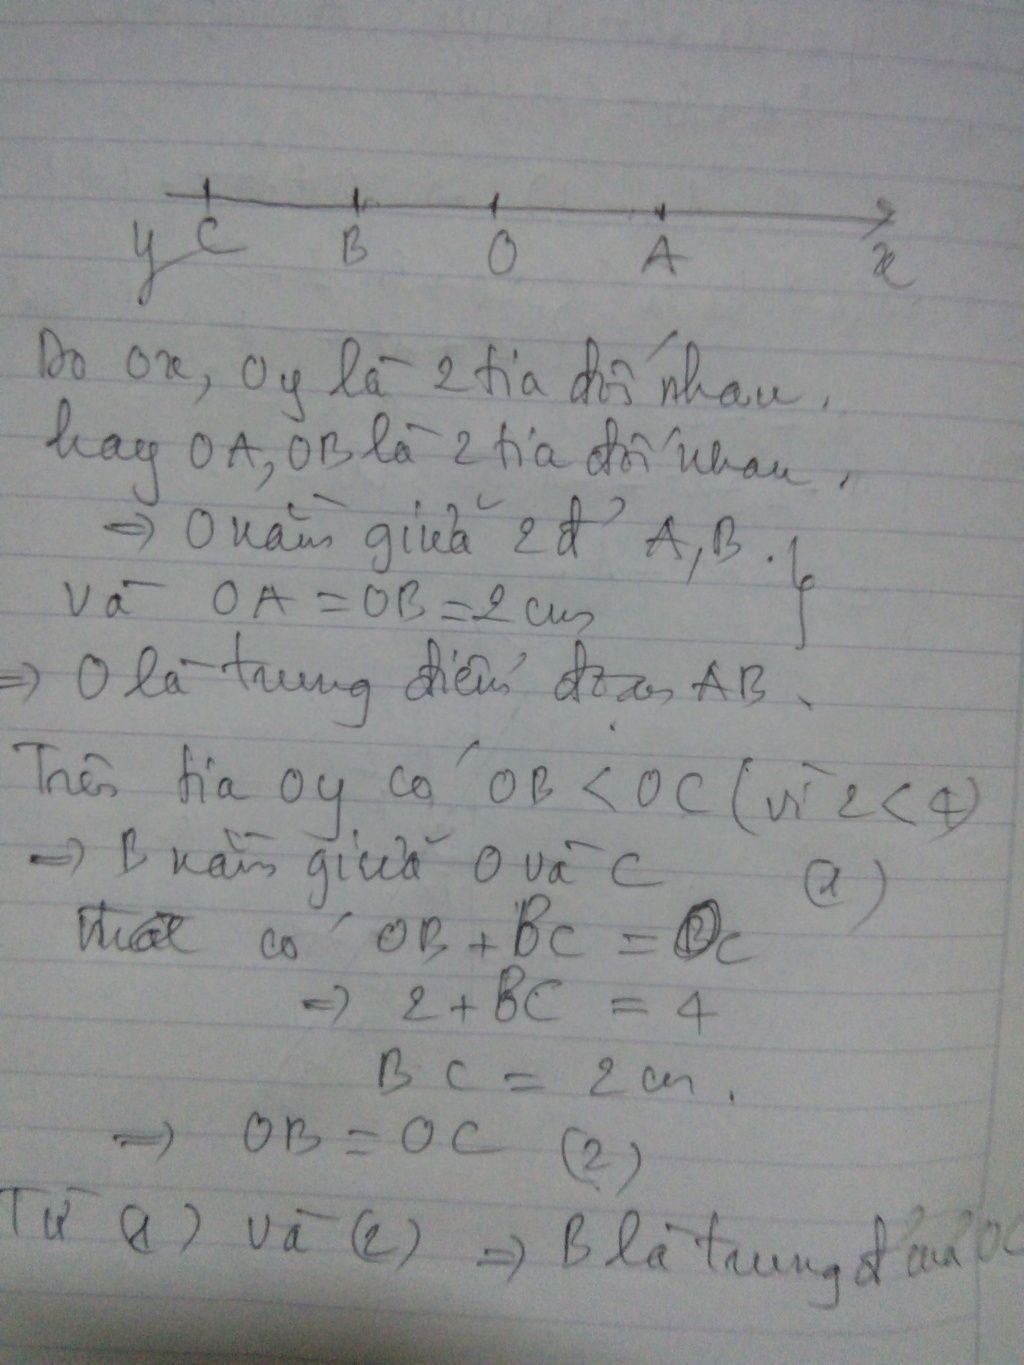 y C B O A x
Do Ox, Oy là 2 tia đối nhau.
hay OA, OB là 2 tia đối nhau.
=> O nằm giữa 2 đ' A, B.
và OA = OB = 2 cm
=> O là trung điểm đoạn AB.
Trên tia Oy có OB < OC (vì 2 < 4)
=> B nằm giữa O và C (1)
có OB + BC = OC
=> 2 + BC = 4
BC = 2 cm.
=> OB = OC (2)
Từ (1) và (2) => B là trung đ' của OC